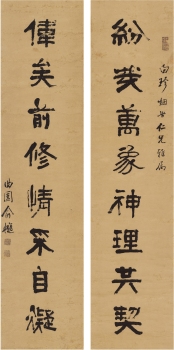 珍姻世仁兄雅屬
紛哉萬象神理共契
偉矣前修情采自凝
曲園俞樾